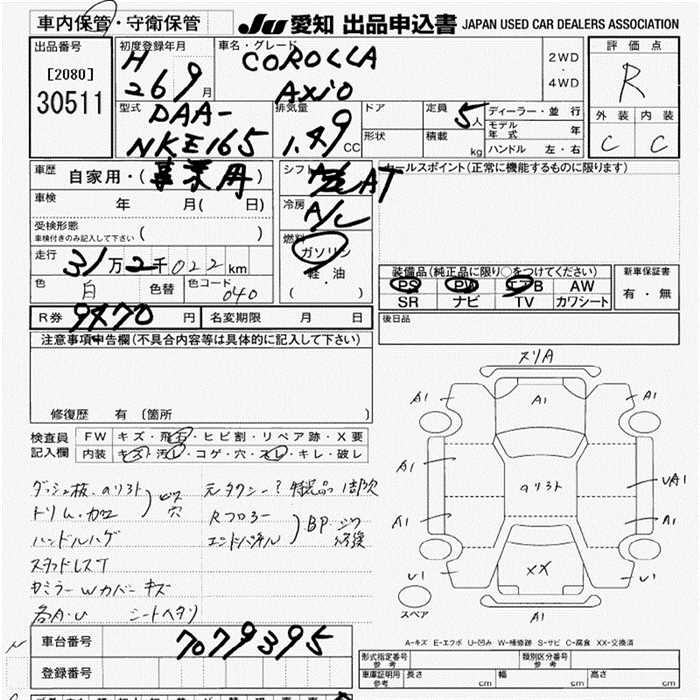 車内保管・守衛保管
JU 愛知 出品申込書 JAPAN USED CAR DEALERS ASSOCIATION
出品番号
[2080]
30511
初度登録年月
H
26 9 月
車名・グレード
COROLLA
AXiO
2WD
・
4WD
評価点
R
外装 内装
C C
型式
DAA-
NKE165
排気量
1.49 CC
ドア
形状
定員 5 人
積載 kg
ディーラー・並行
モデル年式 年
ハンドル 左・右
車歴 自家用・(事業用)
シフト AT
セールスポイント(正常に機能するものに限ります)
車検 年 月( 日)
冷房
A/C
受検形態
車検付きのみ記入して下さい ( )
燃料
ガソリン
軽油
( )
走行 31万2千022km
色 白 色替 色コード 040
装備品(純正品に限り○をつけてください)
PS PW エアB AW
SR ナビ TV カワシート
新車保証書
有・無
R券 9470 円 名変期限 月 日
後日品
注意事項申告欄(不具合内容等は具体的に記入して下さい)
修復歴 有 (箇所 )
検査員
記入欄
FW キズ・飛石・ヒビ割・リペア跡・X要
内装 キズ・汚レ・コゲ・穴・スレ・キレ・破レ
ダッシュ板・のりスト
ドリム・カロ
ビス
穴
ハンドルハゲ
スタッドレスT
各A・U シートヘタリ
元タクシー?
Rフロアー
エンドパネル
BP
スリA
A1 A1 A1
A1 のリスト UA1
A1 A1
U1 XX U1
A1
スペア
A-キズ E-エクボ U-凹み W-補修跡 S-サビ C-腐食 XX-交換済
車台番号 7079395
登録番号
型式指定番号
参考
類別区分番号
参考
車庫証明用
参考
長さ cm 幅 cm 高さ cm